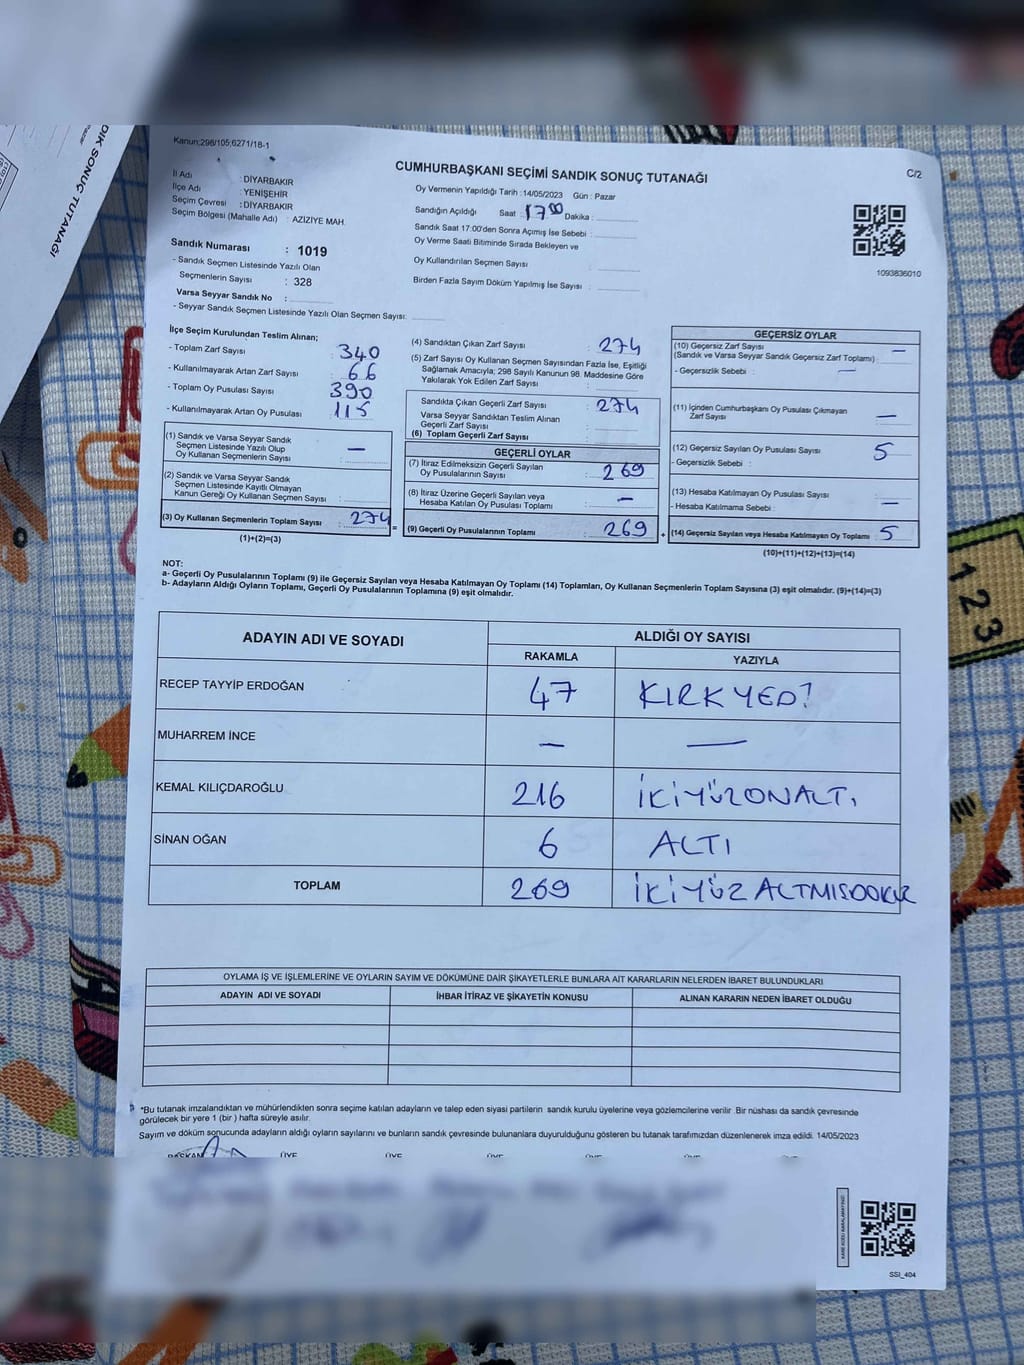 DIK SONUÇ TUTANAĞI
Kanun;298/105;6271/18-1
C/2
CUMHURBAŞKANI SEÇİMİ SANDIK SONUÇ TUTANAĞI
İl Adı : DİYARBAKIR
İlçe Adı : YENİŞEHİR
Seçim Çevresi : DİYARBAKIR
Seçim Bölgesi (Mahalle Adı) : AZIZIYE MAH.
Sandık Numarası : 1019
- Sandık Seçmen Listesinde Yazılı Olan
Seçmenlerin Sayısı : 328
Varsa Seyyar Sandık No :
- Seyyar Sandık Seçmen Listesinde Yazılı Olan Seçmen Sayısı:
Oy Vermenin Yapıldığı Tarih : 14/05/2023 Gün : Pazar
Sandığın Açıldığı Saat : 17 00 Dakika :
Sandık Saat 17:00'den Sonra Açımış İse Sebebi :
Oy Verme Saati Bitiminde Sırada Bekleyen ve
Oy Kullandırılan Seçmen Sayısı :
Birden Fazla Sayım Döküm Yapılmış İse Sayısı :
1093836010
İlçe Seçim Kurulundan Teslim Alınan;
- Toplam Zarf Sayısı : 340
- Kullanılmayarak Artan Zarf Sayısı : 66
- Toplam Oy Pusulası Sayısı : 390
- Kullanılmayarak Artan Oy Pusulası : 115
(1) Sandık ve Varsa Seyyar Sandık
Seçmen Listesinde Yazılı Olup
Oy Kullanan Seçmenlerin Sayısı : —
(2) Sandık ve Varsa Seyyar Sandık
Seçmen Listesinde Kayıtlı Olmayan
Kanun Gereği Oy Kullanan Seçmen Sayısı :
(3) Oy Kullanan Seçmenlerin Toplam Sayısı : 274 =
(1)+(2)=(3)
(4) Sandıktan Çıkan Zarf Sayısı : 274
(5) Zarf Sayısı Oy Kullanan Seçmen Sayısından Fazla İse, Eşitliği
Sağlamak Amacıyla; 298 Sayılı Kanunun 98. Maddesine Göre
Yakılarak Yok Edilen Zarf Sayısı :
Sandıkta Çıkan Geçerli Zarf Sayısı : 274
Varsa Seyyar Sandıktan Teslim Alınan
Geçerli Zarf Sayısı :
(6) Toplam Geçerli Zarf Sayısı :
GEÇERLİ OYLAR
(7) İtiraz Edilmeksizin Geçerli Sayılan
Oy Pusulalarının Sayısı : 269
(8) İtiraz Üzerine Geçerli Sayılan veya
Hesaba Katılan Oy Pusulası Toplamı : —
(9) Geçerli Oy Pusulalarının Toplamı : 269 +
GEÇERSİZ OYLAR
(10) Geçersiz Zarf Sayısı —
(Sandık ve Varsa Seyyar Sandık Geçersiz Zarf Toplamı) :
- Geçersizlik Sebebi : —
(11) İçinden Cumhurbaşkanı Oy Pusulası Çıkmayan
Zarf Sayısı : —
(12) Geçersiz Sayılan Oy Pusulası Sayısı : 5
- Geçersizlik Sebebi :
(13) Hesaba Katılmayan Oy Pusulası Sayısı :
- Hesaba Katılmama Sebebi : —
(14) Geçersiz Sayılan veya Hesaba Katılmayan Oy Toplamı : 5
(10)+(11)+(12)+(13)=(14)
NOT:
a- Geçerli Oy Pusulalarının Toplamı (9) ile Geçersiz Sayılan veya Hesaba Katılmayan Oy Toplamı (14) Toplamları, Oy Kullanan Seçmenlerin Toplam Sayısına (3) eşit olmalıdır. (9)+(14)=(3)
b- Adayların Aldığı Oyların Toplamı, Geçerli Oy Pusulalarının Toplamına (9) eşit olmalıdır.
ADAYIN ADI VE SOYADI ALDIĞI OY SAYISI
RAKAMLA YAZIYLA
RECEP TAYYİP ERDOĞAN 47 KIRKYEDİ
MUHARREM İNCE — —
KEMAL KILIÇDAROĞLU 216 İKİYÜZONALTI
SİNAN OĞAN 6 ALTI
TOPLAM 269 İKİYÜZALTMISDOKUZ
OYLAMA İŞ VE İŞLEMLERİNE VE OYLARIN SAYIM VE DÖKÜMÜNE DAİR ŞİKAYETLERLE BUNLARA AİT KARARLARIN NELERDEN İBARET BULUNDUKLARI
ADAYIN ADI VE SOYADI İHBAR İTİRAZ VE ŞİKAYETİN KONUSU ALINAN KARARIN NEDEN İBARET OLDUĞU
*Bu tutanak imzalandıktan ve mühürlendikten sonra seçime katılan adayların ve talep eden siyasi partilerin sandık kurulu üyelerine veya gözlemcilerine verilir .Bir nüshası da sandık çevresinde
görülecek bir yere 1 (bir ) hafta süreyle asılır.
Sayım ve döküm sonucunda adayların aldığı oyların sayılarını ve bunların sandık çevresinde bulunanlara duyurulduğunu gösteren bu tutanak tarafımızdan düzenlenerek imza edildi. 14/05/2023
BAŞKAN ÜYE ÜYE ÜYE ÜYE ÜYE ÜYE
KARE KODU KARALAMAYINIZ!
SSI_404
123